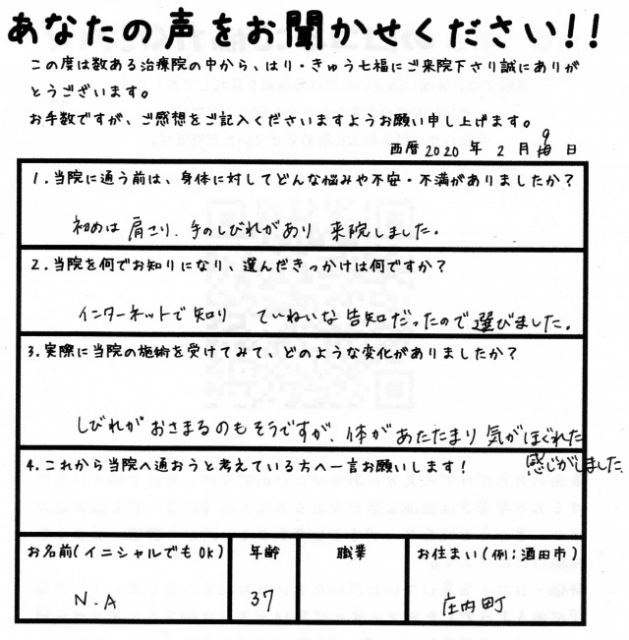 あなたの声をお聞かせください!!
この度は数ある治療院の中から、はり・きゅう七福にご来院下さり誠にありが
とうございます。
お手数ですが、ご感想をご記入くださいますようお願い申し上げます。
西暦2020年2月9日
1.当院に通う前は、身体に対してどんな悩みや不安・不満がありましたか?
初めは肩こり、手のしびれがあり 来院しました。
2.当院を何でお知りになり、選んだきっかけは何ですか?
インターネットで知り ていねいな告知だったので選びました。
3.実際に当院の施術を受けてみて、どのような変化がありましたか?
しびれがおさまるのもそうですが、体があたたまり気がほぐれた
感じがしました
4.これから当院へ通おうと考えている方へ一言お願いします!
お名前(イニシャルでもOK) 年齢 職業 お住まい(例;酒田市)
N.A 37 庄内町